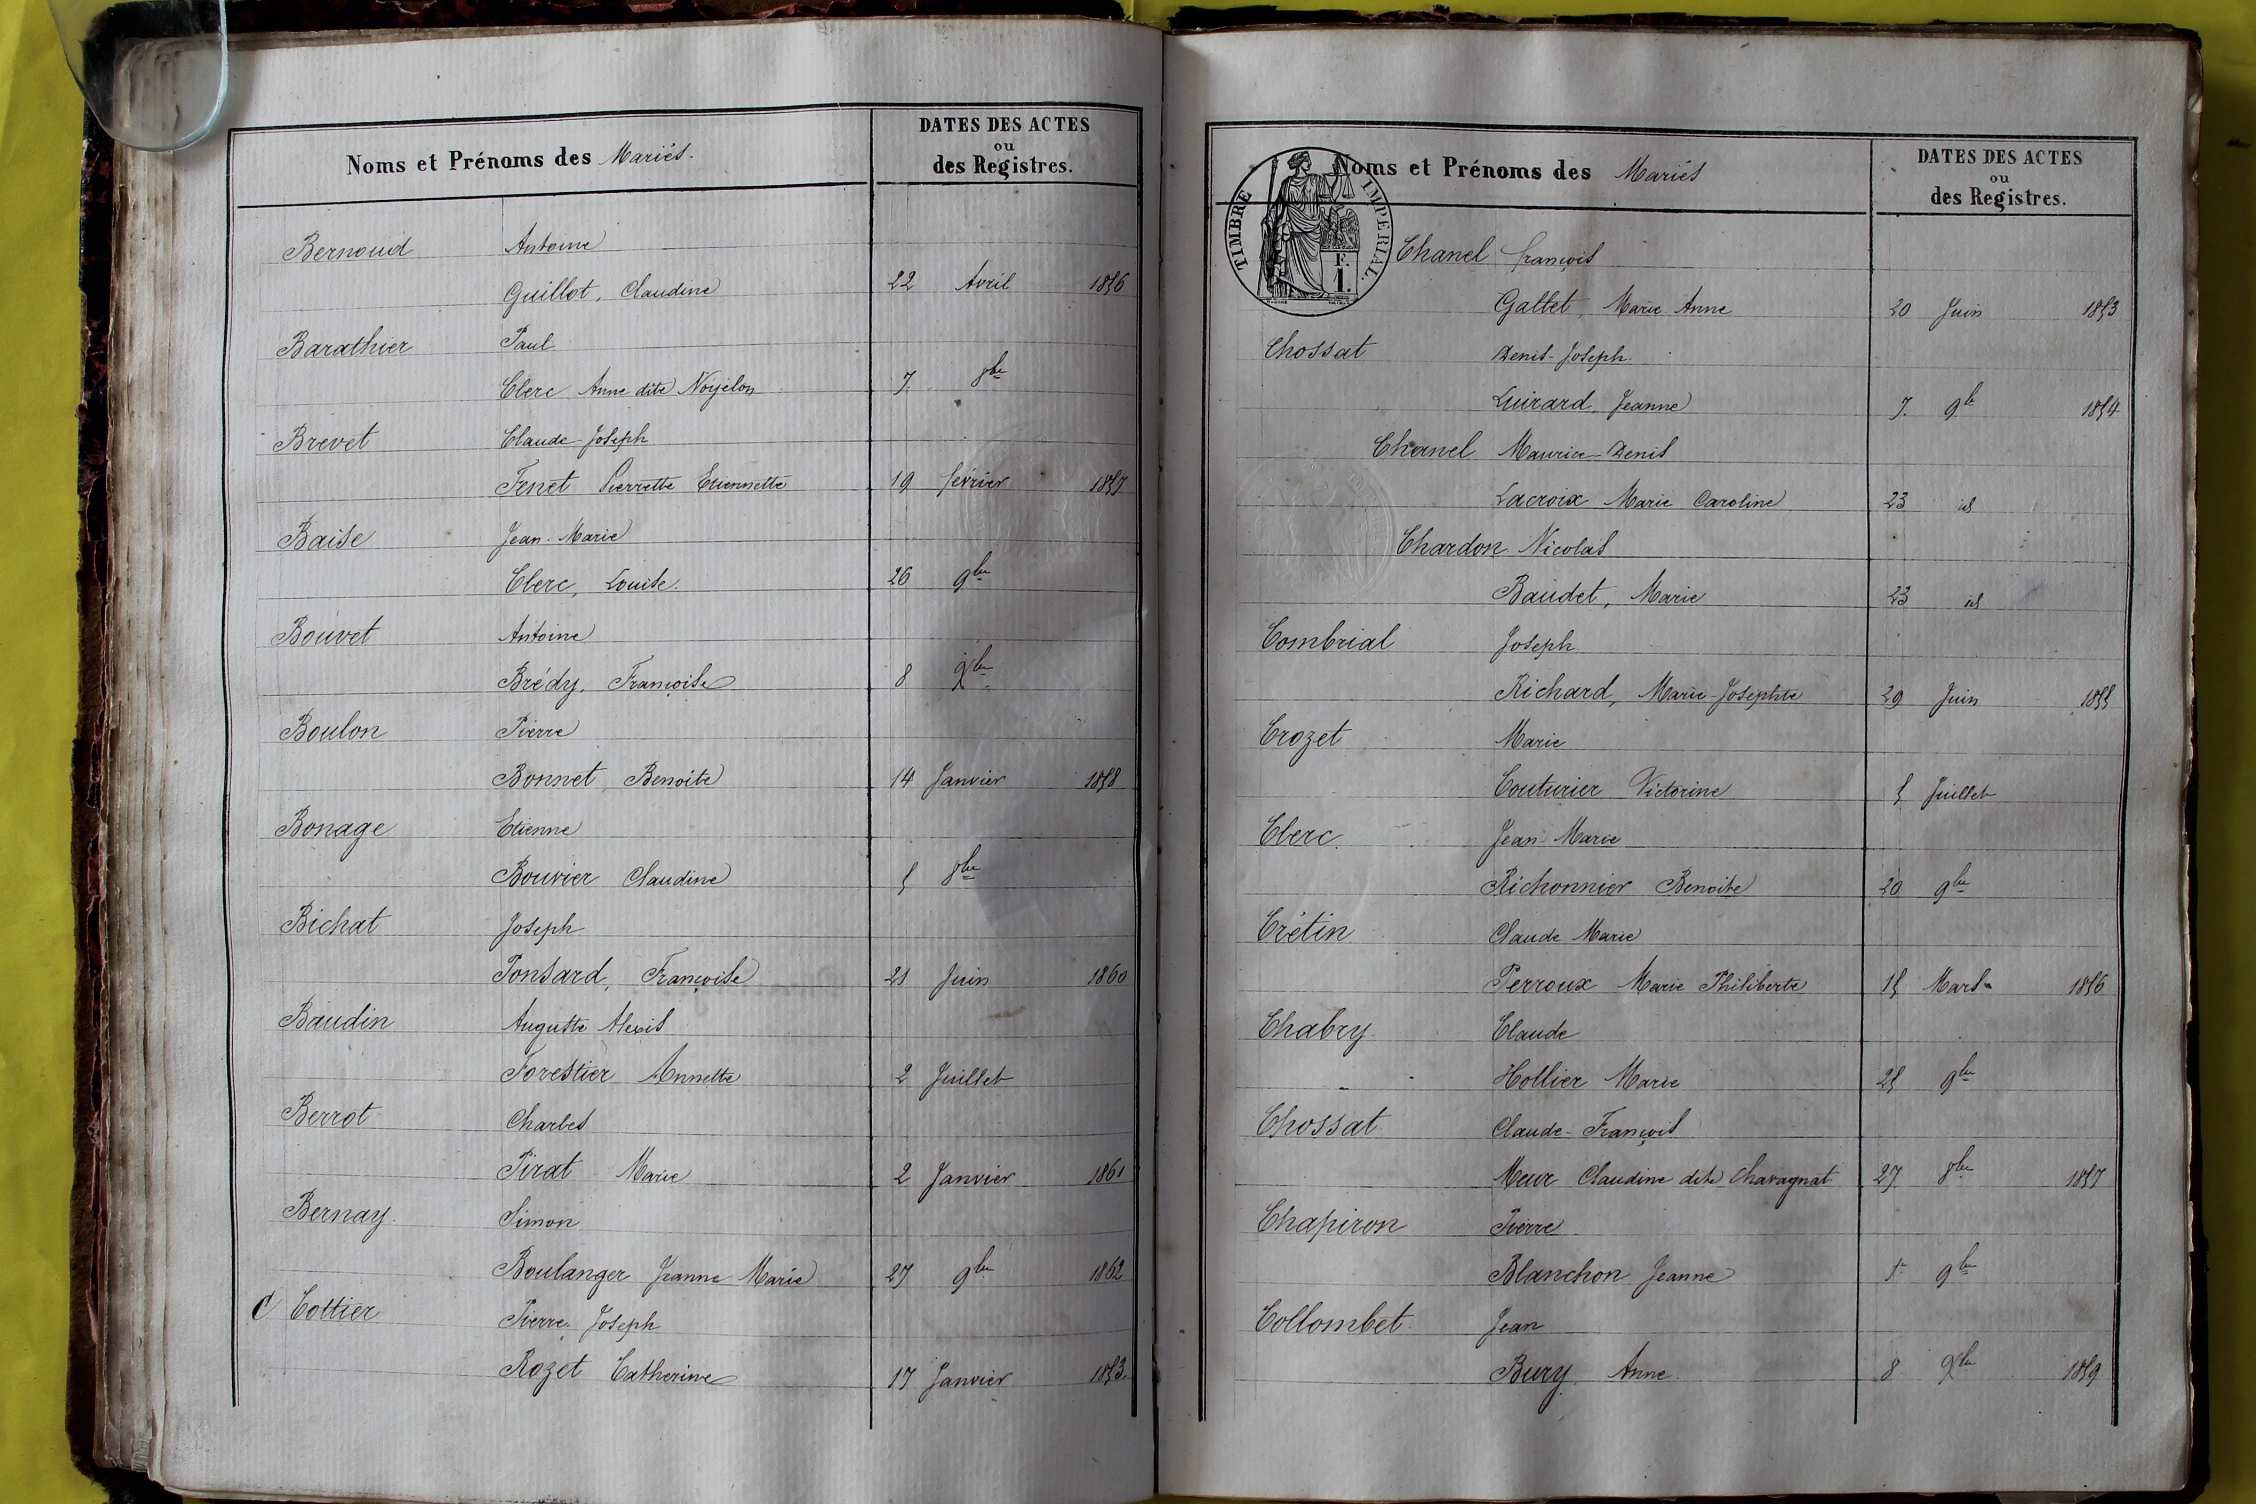 Noms et Prénoms des Mariés.
DATES DES ACTES
ou
des Registres.
Bernoud Antoine
Guillot, Claudine 22 Avril 1856
Barathier Paul
Clerc Anne dite Noyelon 7. 8bre
Brevet Claude-Joseph
Fenet Pierrette Etiennette 19 février 1857
Baise Jean-Marie
Clerc, Louise. 26 9bre
Bouvet Antoine
Brédy, Françoise 8 Xbre
Boulon Pierre
Bonnet, Benoite 14 Janvier 1858
Bonage Etienne
Bouvier Claudine 5 8bre
Bichat Joseph
Ponsard, Françoise 21 Juin 1860
Baudin Auguste Alexis
Forestier Annette 2 Juillet
Berrot Charles
Pirat Marie 2 Janvier 1861
Bernay. Simon
Boulanger Jeanne Marie 27 9bre 1862
C Cottier Pierre Joseph
Rozet Catherine 17 Janvier 1853.
TIMBRE IMPERIAL.
F.
1.
Noms et Prénoms des Mariés
DATES DES ACTES
ou
des Registres.
Chanel françois
Gallet, Marie Anne 20 Juin 1853
Chossat Denis-Joseph.
Luirard Jeanne 7. 9b 1854
Chanel Maurice-Denis
Lacroix Marie Caroline 23 id
Chardon Nicolas
Baudet, Marie 23 id
Combrial Joseph
Richard, Marie-Josephte 29 Juin 1855
Crozet Marie
Couturier Victorine 5 Juillet
Clerc. Jean-Marie
Richonnier Benoite 20 9bre
Crétin Claude Marie
Perroux Marie Philiberte 15 Mars 1856
Chabry Claude
Hollier Marie 25 9bre
Chossat Claude-François
Meur Claudine dite Chavagnat 27 8bre 1857
Chapiron Pierre
Blanchon Jeanne 5 9bre
Collombet Jean
Bury Anne 8 Xbre 1859